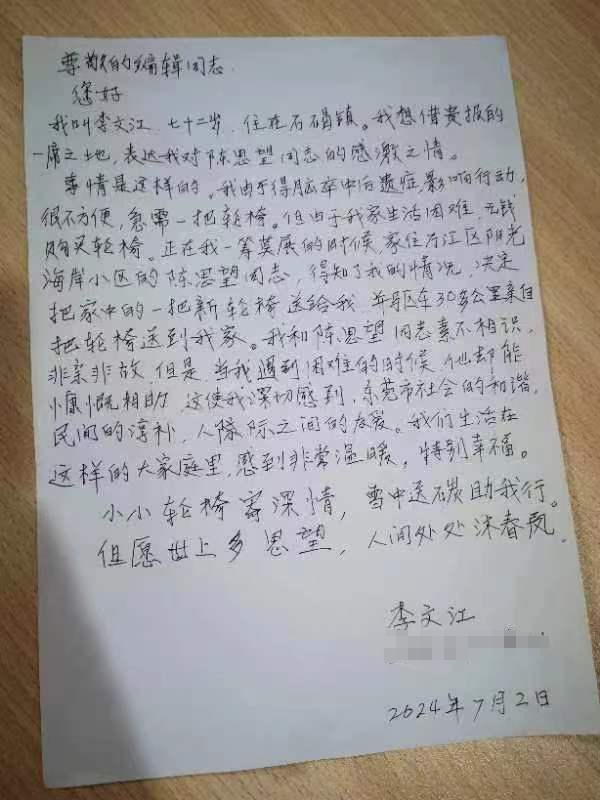 尊敬的编辑同志
您好
我叫李文江，七十二岁，住在石碣镇。我想借贵报的
一席之地，表达我对陈思望同志的感激之情。
事情是这样的。我由于得脑卒中后遗症，影响行动，
很不方便，急需一把轮椅。但由于我家生活困难，无钱
购买轮椅。正在我一筹莫展的时候，家住万江区阳光
海岸小区的陈思望同志，得知了我的情况，决定
把家中的一把新轮椅送给我，并驱车30多公里亲自
把轮椅送到我家。我和陈思望同志素不相识，
非亲非故，但是，当我遇到困难的时候，他却能
慷慨相助，这使我深切感到，东莞市社会的和谐，
民间的淳朴，人际之间的友爱。我们生活在
这样的大家庭里，感到非常温暖，特别幸福。
小小轮椅寄深情，雪中送碳助我行。
但愿世上多思望，人间处处沐春风。
李文江
2024年7月2日